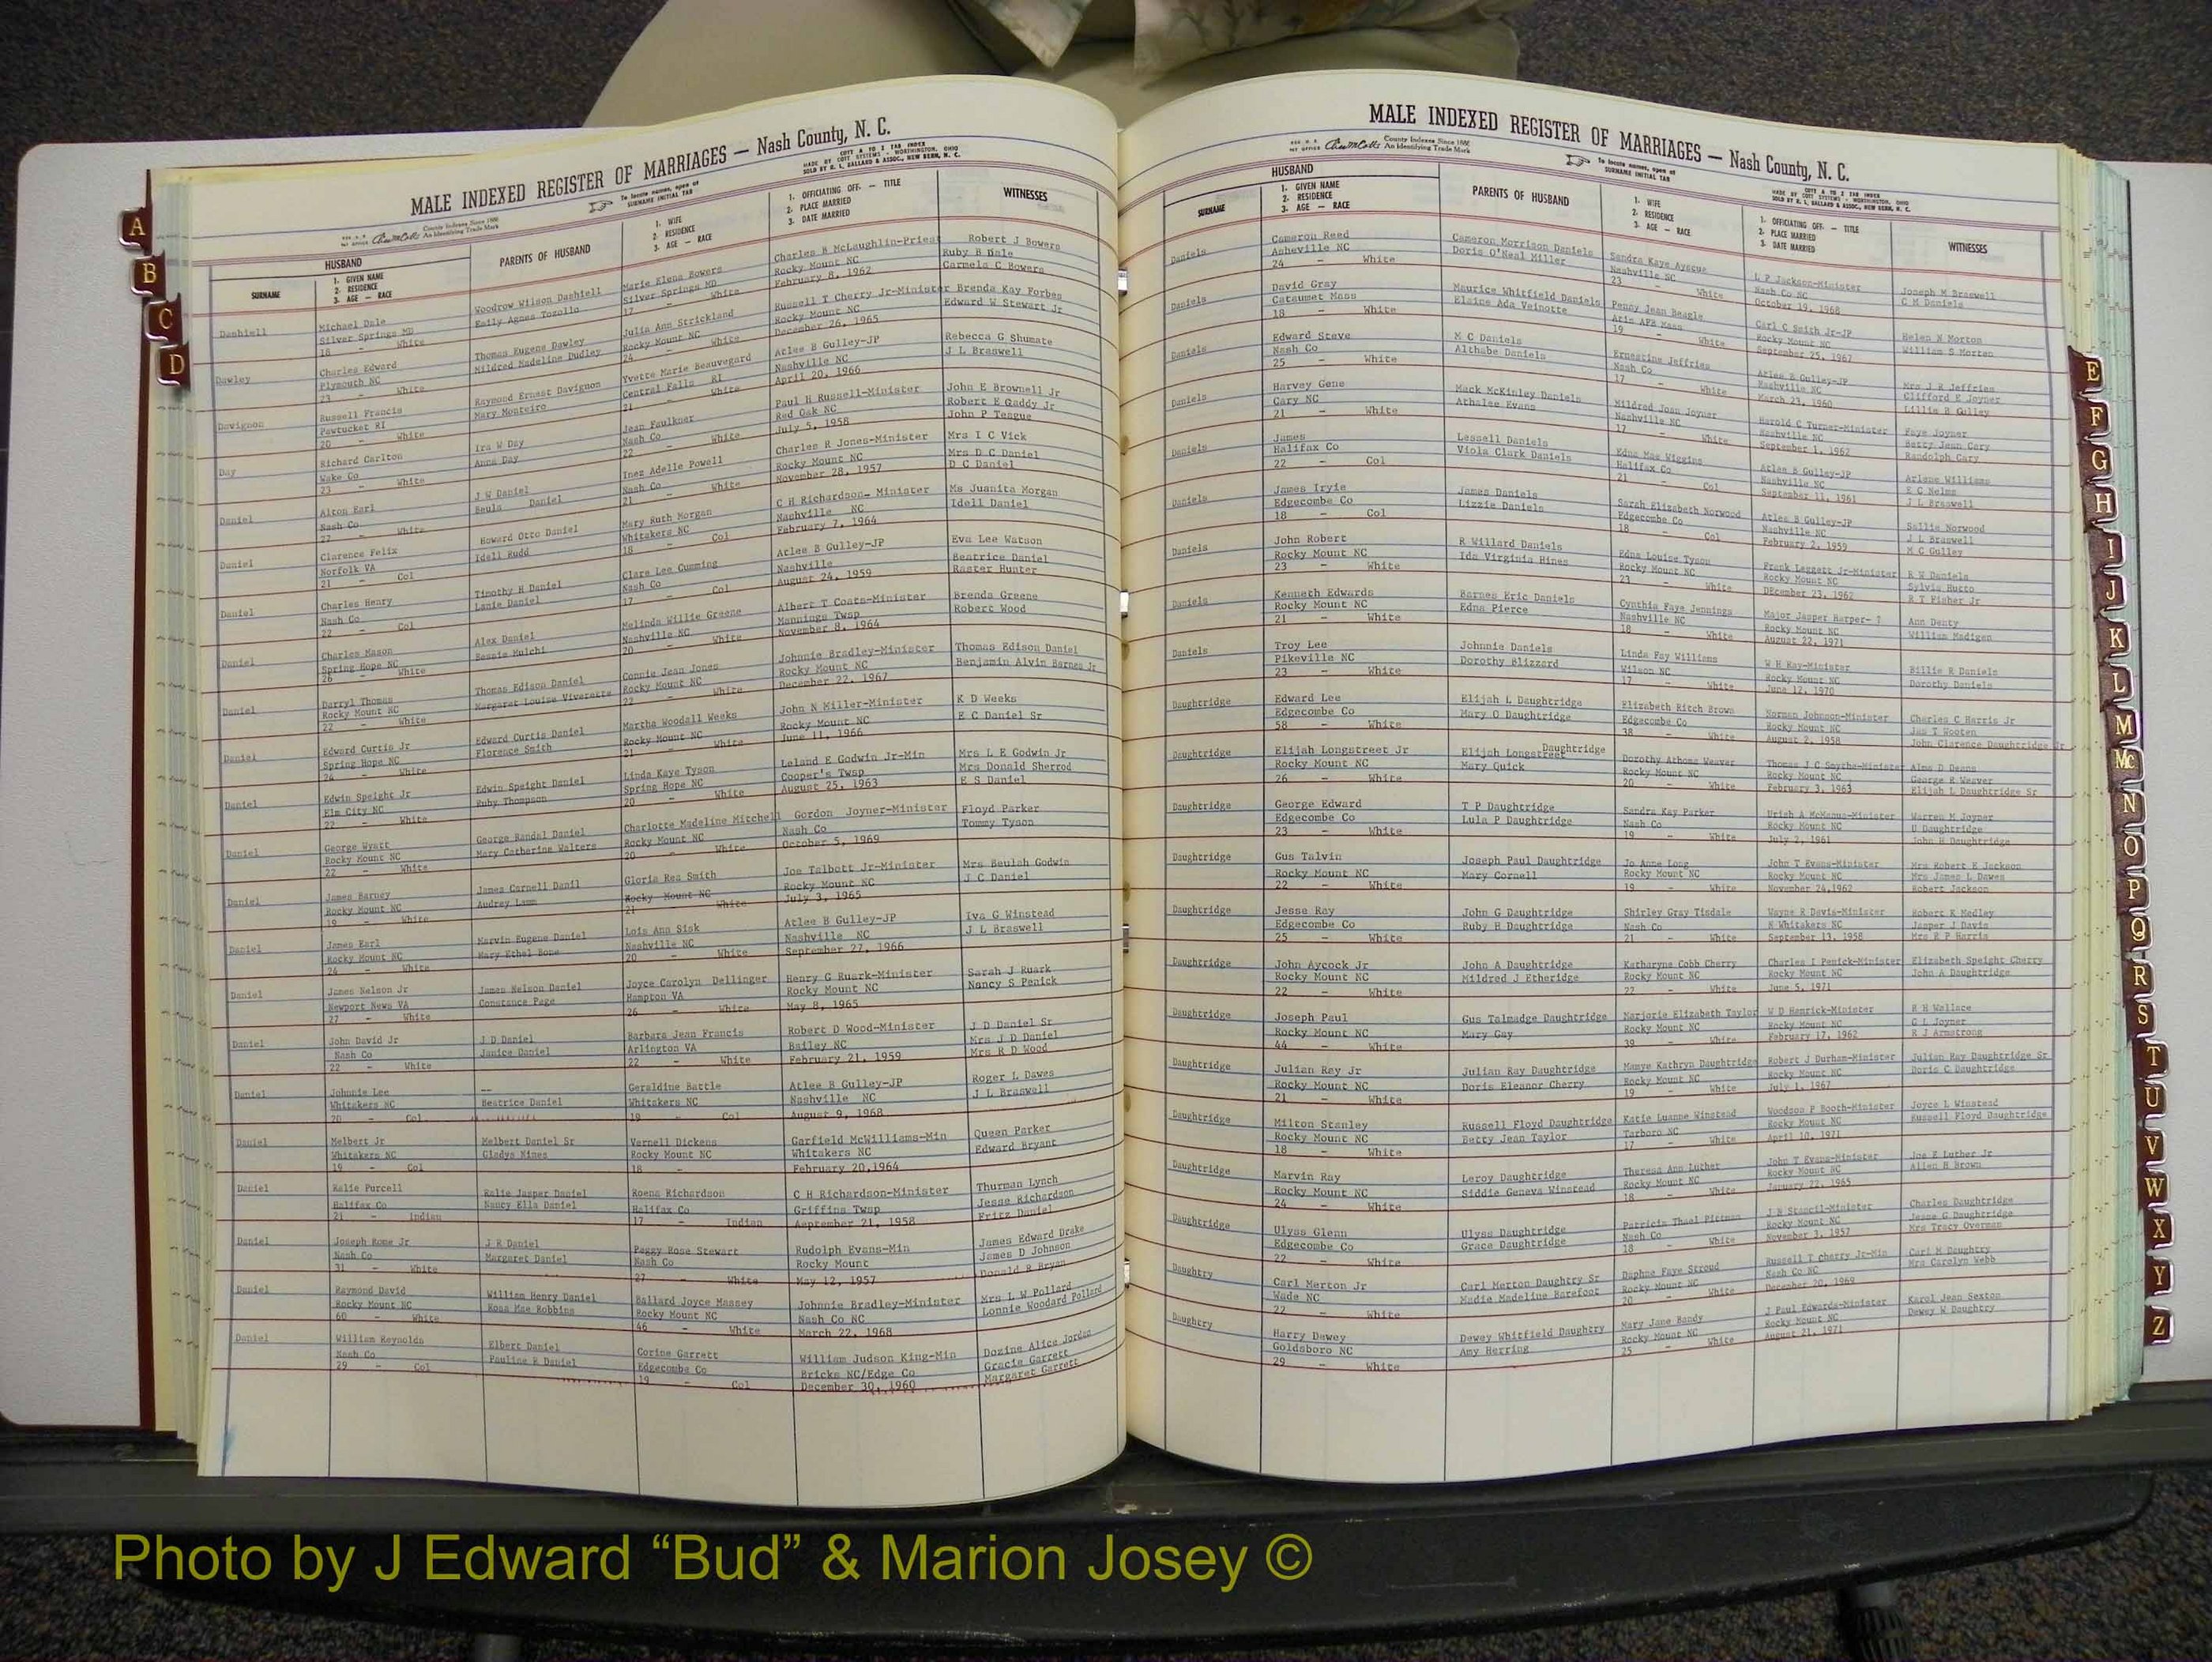 MALE INDEXED REGISTER OF MARRIAGES — Nash County, N. C.
County Indexes Since 1888
An Identifying Trade Mark
To locate names, open at
SURNAME INITIAL TAB
COTT A TO Z TAB INDEX
MADE BY COTT SYSTEMS - WORTHINGTON, OHIO
SOLD BY O. L. BALLARD & ASSOC., NEW BERN, N. C.
HUSBAND
SURNAME
1. GIVEN NAME
2. RESIDENCE
3. AGE — RACE
PARENTS OF HUSBAND
1. WIFE
2. RESIDENCE
3. AGE — RACE
1. OFFICIATING OFF. — TITLE
2. PLACE MARRIED
3. DATE MARRIED
WITNESSES
Dashiell Michael Dale Woodrow Wilson Dashiell Marie Elena Bowers Charles B McLaughlin-Priest Robert J Bowers
Silver Springs MD Emily Agnes Tozollo Silver Springs MD Rocky Mount NC Ruby B Dale
18 - White 17 - White February 8, 1962 Carmela C Bowers
Dawley Charles Edward Thomas Eugene Dawley Julia Ann Strickland Russell T Cherry Jr-Minister Brenda Kay Forbes
Plymouth NC Mildred Madeline Dudley Rocky Mount NC Rocky Mount NC Edward W Stewart Jr
23 - White 24 - White December 26, 1965
Davignon Russell Francis Raymond Ernest Davignon Yvette Marie Beauvegard Atlee B Gulley-JP Rebecca G Shumate
Pawtucket RI Mary Monteiro Central Falls RI Nashville NC J L Braswell
20 - White 21 - White April 20, 1966
Day Richard Carlton Ira W Day Jean Faulkner Paul H Russell-Minister John E Brownell Jr
Wake Co Anna Day Nash Co Red Oak NC Robert E Gaddy Jr
23 - White 22 - White July 5, 1958 John P Teague
Daniel Alton Earl J W Daniel Inez Adelle Powell Charles R Jones-Minister Mrs I C Vick
Nash Co Beula Daniel Nash Co Rocky Mount NC Mrs D C Daniel
22 - White 21 - White November 28, 1957 D C Daniel
Daniel Clarence Felix Howard Otto Daniel Mary Ruth Morgan C H Richardson- Minister Ms Juanita Morgan
Norfolk VA Idell Rudd Whitakers NC Nashville NC Idell Daniel
21 - Col 18 - Col February 7, 1964
Daniel Charles Henry Timothy H Daniel Clara Lee Cumming Atlee B Gulley-JP Eva Lee Watson
Nash Co Lanie Daniel Nash Co Nashville Beatrice Daniel
22 - Col 17 - Col August 24, 1959 Raster Hunter
Daniel Charles Mason Alex Daniel Melinda Willie Greene Albert T Coats-Minister Brenda Greene
Spring Hope NC Bessie Mulchi Nashville NC Mannings Twsp Robert Wood
26 - White 20 - White November 8, 1964
Daniel Darryl Thomas Thomas Edison Daniel Connie Jean Jones Johnnie Bradley-Minister Thomas Edison Daniel
Rocky Mount NC Margaret Louise Viverette Rocky Mount NC Rocky Mount NC Benjamin Alvin Barnes Jr
22 - White 22 - White December 22, 1967
Daniel Edward Curtis Jr Edward Curtis Daniel Martha Woodall Weeks John N Miller-Minister K D Weeks
Spring Hope NC Florence Smith Rocky Mount NC Rocky Mount NC E C Daniel Sr
24 - White 21 - White June 11, 1966
Daniel Edwin Speight Jr Edwin Speight Daniel Linda Kaye Tyson Leland E Godwin Jr-Min Mrs L E Godwin Jr
Elm City NC Ruby Thompson Spring Hope NC Cooper's Twsp Mrs Donald Sherrod
22 - White 20 - White August 25, 1963 E S Daniel
Daniel George Wyatt George Randal Daniel Charlotte Madeline Mitchell Gordon Joyner-Minister Floyd Parker
Rocky Mount NC Mary Catherine Walters Rocky Mount NC Nash Co Tommy Tyson
22 - White 20 - White October 5, 1969
Daniel James Barney James Carnell Danil Gloria Rea Smith Joe Talbott Jr-Minister Mrs Beulah Godwin
Rocky Mount NC Audrey Lamm Rocky Mount NC Rocky Mount NC J C Daniel
19 - White 21 - White July 3, 1965
Daniel James Earl Marvin Eugene Daniel Lois Ann Sisk Atlee B Gulley-JP Iva G Winstead
Rocky Mount NC Mary Ethel Bone Nashville NC Nashville NC J L Braswell
24 - White 20 - White September 27, 1966
Daniel James Nelson Jr James Nelson Daniel Joyce Carolyn Dellinger Henry G Ruark-Minister Sarah J Ruark
Newport News VA Constance Page Hampton VA Rocky Mount NC Nancy S Penick
27 - White 26 - White May 8, 1965
Daniel John David Jr J D Daniel Barbara Jean Francis Robert D Wood-Minister J D Daniel Sr
Nash Co Janice Daniel Arlington VA Bailey NC Mrs J D Daniel
22 - White 22 - White February 21, 1959 Mrs R D Wood
Daniel Johnnie Lee -- Geraldine Battle Atlee B Gulley-JP Roger L Dawes
Whitakers NC Beatrice Daniel Whitakers NC Nashville NC J L Braswell
20 - Col 19 - Col August 9, 1968
Daniel Melbert Jr Melbert Daniel Sr Vernell Dickens Garfield McWilliams-Min Queen Parker
Whitakers NC Gladys Hines Rocky Mount NC Whitakers NC Edward Bryant
19 - Col 18 - February 20,1964
Daniel Ralie Purcell Ralie Jasper Daniel Roena Richardson C H Richardson-Minister Thurman Lynch
Halifax Co Nancy Ella Daniel Halifax Co Griffins Twsp Jesse Richardson
21 - Indian 17 - Indian Aeptember 21, 1958 Fritz Daniel
Daniel Joseph Rome Jr J R Daniel Peggy Rose Stewart Rudolph Evans-Min James Edward Drake
Nash Co Margaret Daniel Nash Co Rocky Mount James D Johnson
31 - White 27 - White May 12, 1957 Donald R Bryan
Daniel Raymond David William Henry Daniel Ballard Joyce Massey Johnnie Bradley-Minister Mrs L W Pollard
Rocky Mount NC Rosa Mae Robbins Rocky Mount NC Nash Co NC Lonnie Woodard Pollard
60 - White 46 - White March 22, 1968
Daniel William Reynolds Elbert Daniel Corine Garrett William Judson King-Min Dozine Alice Jordan
Nash Co Pauline R Daniel Edgecombe Co Bricks NC/Edge Co Gracie Garrett
29 - Col 19 - Col December 30, 1960 Margaret Garrett
MALE INDEXED REGISTER OF MARRIAGES — Nash County, N. C.
County Indexes Since 1888
An Identifying Trade Mark
To locate names, open at
SURNAME INITIAL TAB
COTT A TO Z TAB INDEX
MADE BY COTT SYSTEMS - WORTHINGTON, OHIO
SOLD BY O. L. BALLARD & ASSOC., NEW BERN, N. C.
HUSBAND
SURNAME
1. GIVEN NAME
2. RESIDENCE
3. AGE — RACE
PARENTS OF HUSBAND
1. WIFE
2. RESIDENCE
3. AGE — RACE
1. OFFICIATING OFF. — TITLE
2. PLACE MARRIED
3. DATE MARRIED
WITNESSES
Daniels Cameron Reed Cameron Morrison Daniels Sandra Kaye Ayscue L P Jackson-Minister Joseph M Braswell
Asheville NC Doris O'Neal Miller Nashville NC Nash Co NC C M Daniels
24 - White 23 - White October 19, 1968
Daniels David Gray Maurice Whitfield Daniels Penny Jean Beagle Carl C Smith Jr-JP Helen N Morton
Cataumet Mass Elaine Ada Veinotte Aris AFB Mass Rocky Mount NC William S Morten
18 - White 19 - White September 25, 1967
Daniels Edward Steve M C Daniels Ernestine Jeffries Atlee B Gulley-JP Mrs J R Jeffries
Nash Co Althabe Daniels Nash Co Nashville NC Clifford E Joyner
25 - White 17 - White March 23, 1960 Lillie B Gulley
Daniels Harvey Gene Mack McKinley Daniels Mildred Joan Joyner Harold C Turner-Minister Faye Joyner
Cary NC Athalee Evans Nashville NC Nashville NC Betty Jean Cary
21 - White 17 - White September 1, 1962 Randolph Cary
Daniels James Lessell Daniels Edna Mae Wiggins Atlee B Gulley-JP Arlene Williams
Halifax Co Viola Clark Daniels Halifax Co Nashville NC E C Nelms
22 - Col 21 - Col September 11, 1961 J L Braswell
Daniels James Iryie James Daniels Sarah Elizabeth Norwood Atlee B Gulley-JP Sallie Norwood
Edgecombe Co Lizzie Daniels Edgecombe Co Nashville NC J L Braswell
18 - Col 18 - Col February 2, 1959 M C Gulley
Daniels John Robert R Willard Daniels Edna Louise Tyson Frank Leggett Jr-Minister R W Daniels
Rocky Mount NC Ida Virginia Hines Rocky Mount NC Rocky Mount NC Sylvia Hutto
23 - White 23 - White DEcember 23, 1962 R T Fisher Jr
Daniels Kenneth Edwards Barnes Eric Daniels Cynthia Faye Jennings Major Jasper Harper- Ann Denty
Rocky Mount NC Edna Pierce Nashville NC Rocky Mount NC William Madigan
21 - White 18 - White August 22, 1971
Daniels Troy Lee Johnnie Daniels Linda Fay Williams W H Ray-Minister Billie R Daniels
Pikeville NC Dorothy Blizzard Wilson NC Rocky Mount NC Dorothy Daniels
23 - White 17 - White June 12, 1970
Daughtridge Edward Lee Elijah L Daughtridge Elizabeth Ritch Brown Norman Johnson-Minister Charles C Harris Jr
Edgecombe Co Mary O Daughtridge Edgecombe Co Rocky Mount NC Jas T Wooten
58 - White 38 - White August 2, 1958 John Clarence Daughtridge Jr
Daughtridge Elijah Longstreet Jr Elijah Longstreet Daughtridge Dorothy Athone Weaver Thomas J C Smythe-Minister Alma D Deans
Rocky Mount NC Mary Quick Rocky Mount NC Rocky Mount NC George R Weaver
26 - White 20 - White February 3, 1963 Elijah L Daughtridge Sr
Daughtridge George Edward T P Daughtridge Sandra Kay Parker Uriah A McManus-Minister Warren M Joyner
Edgecombe Co Lula P Daughtridge Nash Co Rocky Mount NC U Daughtridge
23 - White 19 - White July 2, 1961 John H Daughtridge
Daughtridge Gus Talvin Joseph Paul Daughtridge Jo Anne Long John T Evans-Minister Mrs Robert E Jackson
Rocky Mount NC Mary Cornell Rocky Mount NC Rocky Mount NC Mrs James L Dawes
22 - White 19 - White November 24,1962 Robert Jackson
Daughtridge Jesse Ray John G Daughtridge Shirley Gray Tisdale Wayne R Davis-Minister Robert K Medley
Edgecombe Co Ruby H Daughtridge Nash Co N Whitakers NC Jasper J Davis
25 - White 21 - White September 13, 1958 Mrs R P Harris
Daughtridge John Aycock Jr John A Daughtridge Katharyne Cobb Cherry Charles I Penick-Minister Elizabeth Speight Cherry
Rocky Mount NC Mildred J Etheridge Rocky Mount NC Rocky Mount NC John A Daughtridge
22 - White 22 - White June 5, 1971
Daughtridge Joseph Paul Gus Talmadge Daughtridge Marjorie Elizabeth Taylor W D Hamrick-Minister B H Wallace
Rocky Mount NC Mary Gay Rocky Mount NC Rocky Mount NC G L Joyner
44 - White 39 - White February 17, 1962 R J Armstrong
Daughtridge Julian Ray Jr Julian Ray Daughtridge Mamye Kathryn Daughtridge Robert J Durham-Minister Julian Ray Daughtridge Sr
Rocky Mount NC Doris Eleanor Cherry Rocky Mount NC Rocky Mount NC Doris C Daughtridge
21 - White 19 - White July 1, 1967
Daughtridge Milton Stanley Russell Floyd Daughtridge Katie Luanne Winstead Woodson P Booth-Minister Joyce L Winstead
Rocky Mount NC Betty Jean Taylor Tarboro NC Rocky Mount NC Russell Floyd Daughtridge
18 - White 17 - White April 10, 1971
Daughtridge Marvin Ray Leroy Daughtridge Theresa Ann Luther John T Evans-Minister Joe E Luther Jr
Rocky Mount NC Siddie Geneva Winstead Rocky Mount NC Rocky Mount NC Allen H Brown
24 - White 18 - White January 22, 1965
Daughtridge Ulyss Glenn Ulyss Daughtridge Patricia Thael Pittman J B Stancil-Minister Charles Daughtridge
Edgecombe Co Grace Daughtridge Nash Co Rocky Mount NC Jesse G Daughtridge
22 - White 18 - White November 3, 1957 Mrs Tracy Overman
Daughtry Carl Merton Jr Carl Merton Daughtry Sr Daphne Faye Stroud Russell T Cherry Jr-Min Carl M Daughtry
Wade NC Madie Madeline Barefoot Rocky Mount NC Nash Co NC Mrs Carolyn Webb
22 - White 20 - White December 20, 1969
Daughtry Harry Dewey Dewey Whitfield Daughtry Mary Jane Bandy J Paul Edwards-Minister Karol Jean Sexton
Goldsboro NC Amy Herring Rocky Mount NC Rocky Mount NC Dewey W Daughtry
29 - White 25 - White August 21, 1971
A
B
C
D
E
F
G
H
I
J
K
L
M
Mc
N
O
P
Q
R
S
T
U
V
W
X
Y
Z
Photo by J Edward “Bud” & Marion Josey ©